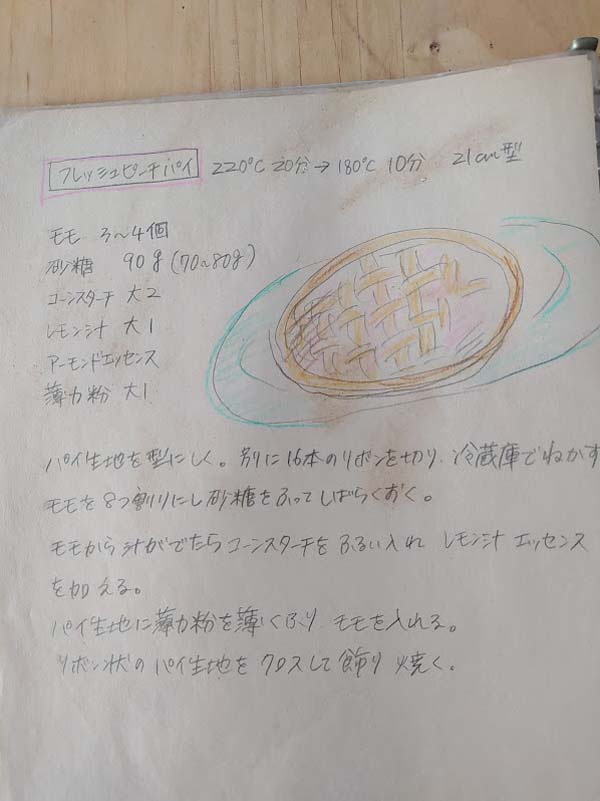 フレッシュピーチパイ 220℃ 20分→180℃ 10分 21cm型
モモ 3〜4個
砂糖 90g(70〜80g)
コーンスターチ 大2
レモン汁 大1
アーモンドエッセンス
薄力粉 大1
パイ生地を型にしく。別に16本のリボンを切り、冷蔵庫でねかす
モモを8つ割りにし砂糖をふってしばらくおく。
モモから汁がでたらコーンスターチをふるい入れ レモン汁 エッセンス
を加える。
パイ生地に薄力粉を薄くふり モモを入れる。
リボン状のパイ生地をクロスして飾り 焼く。